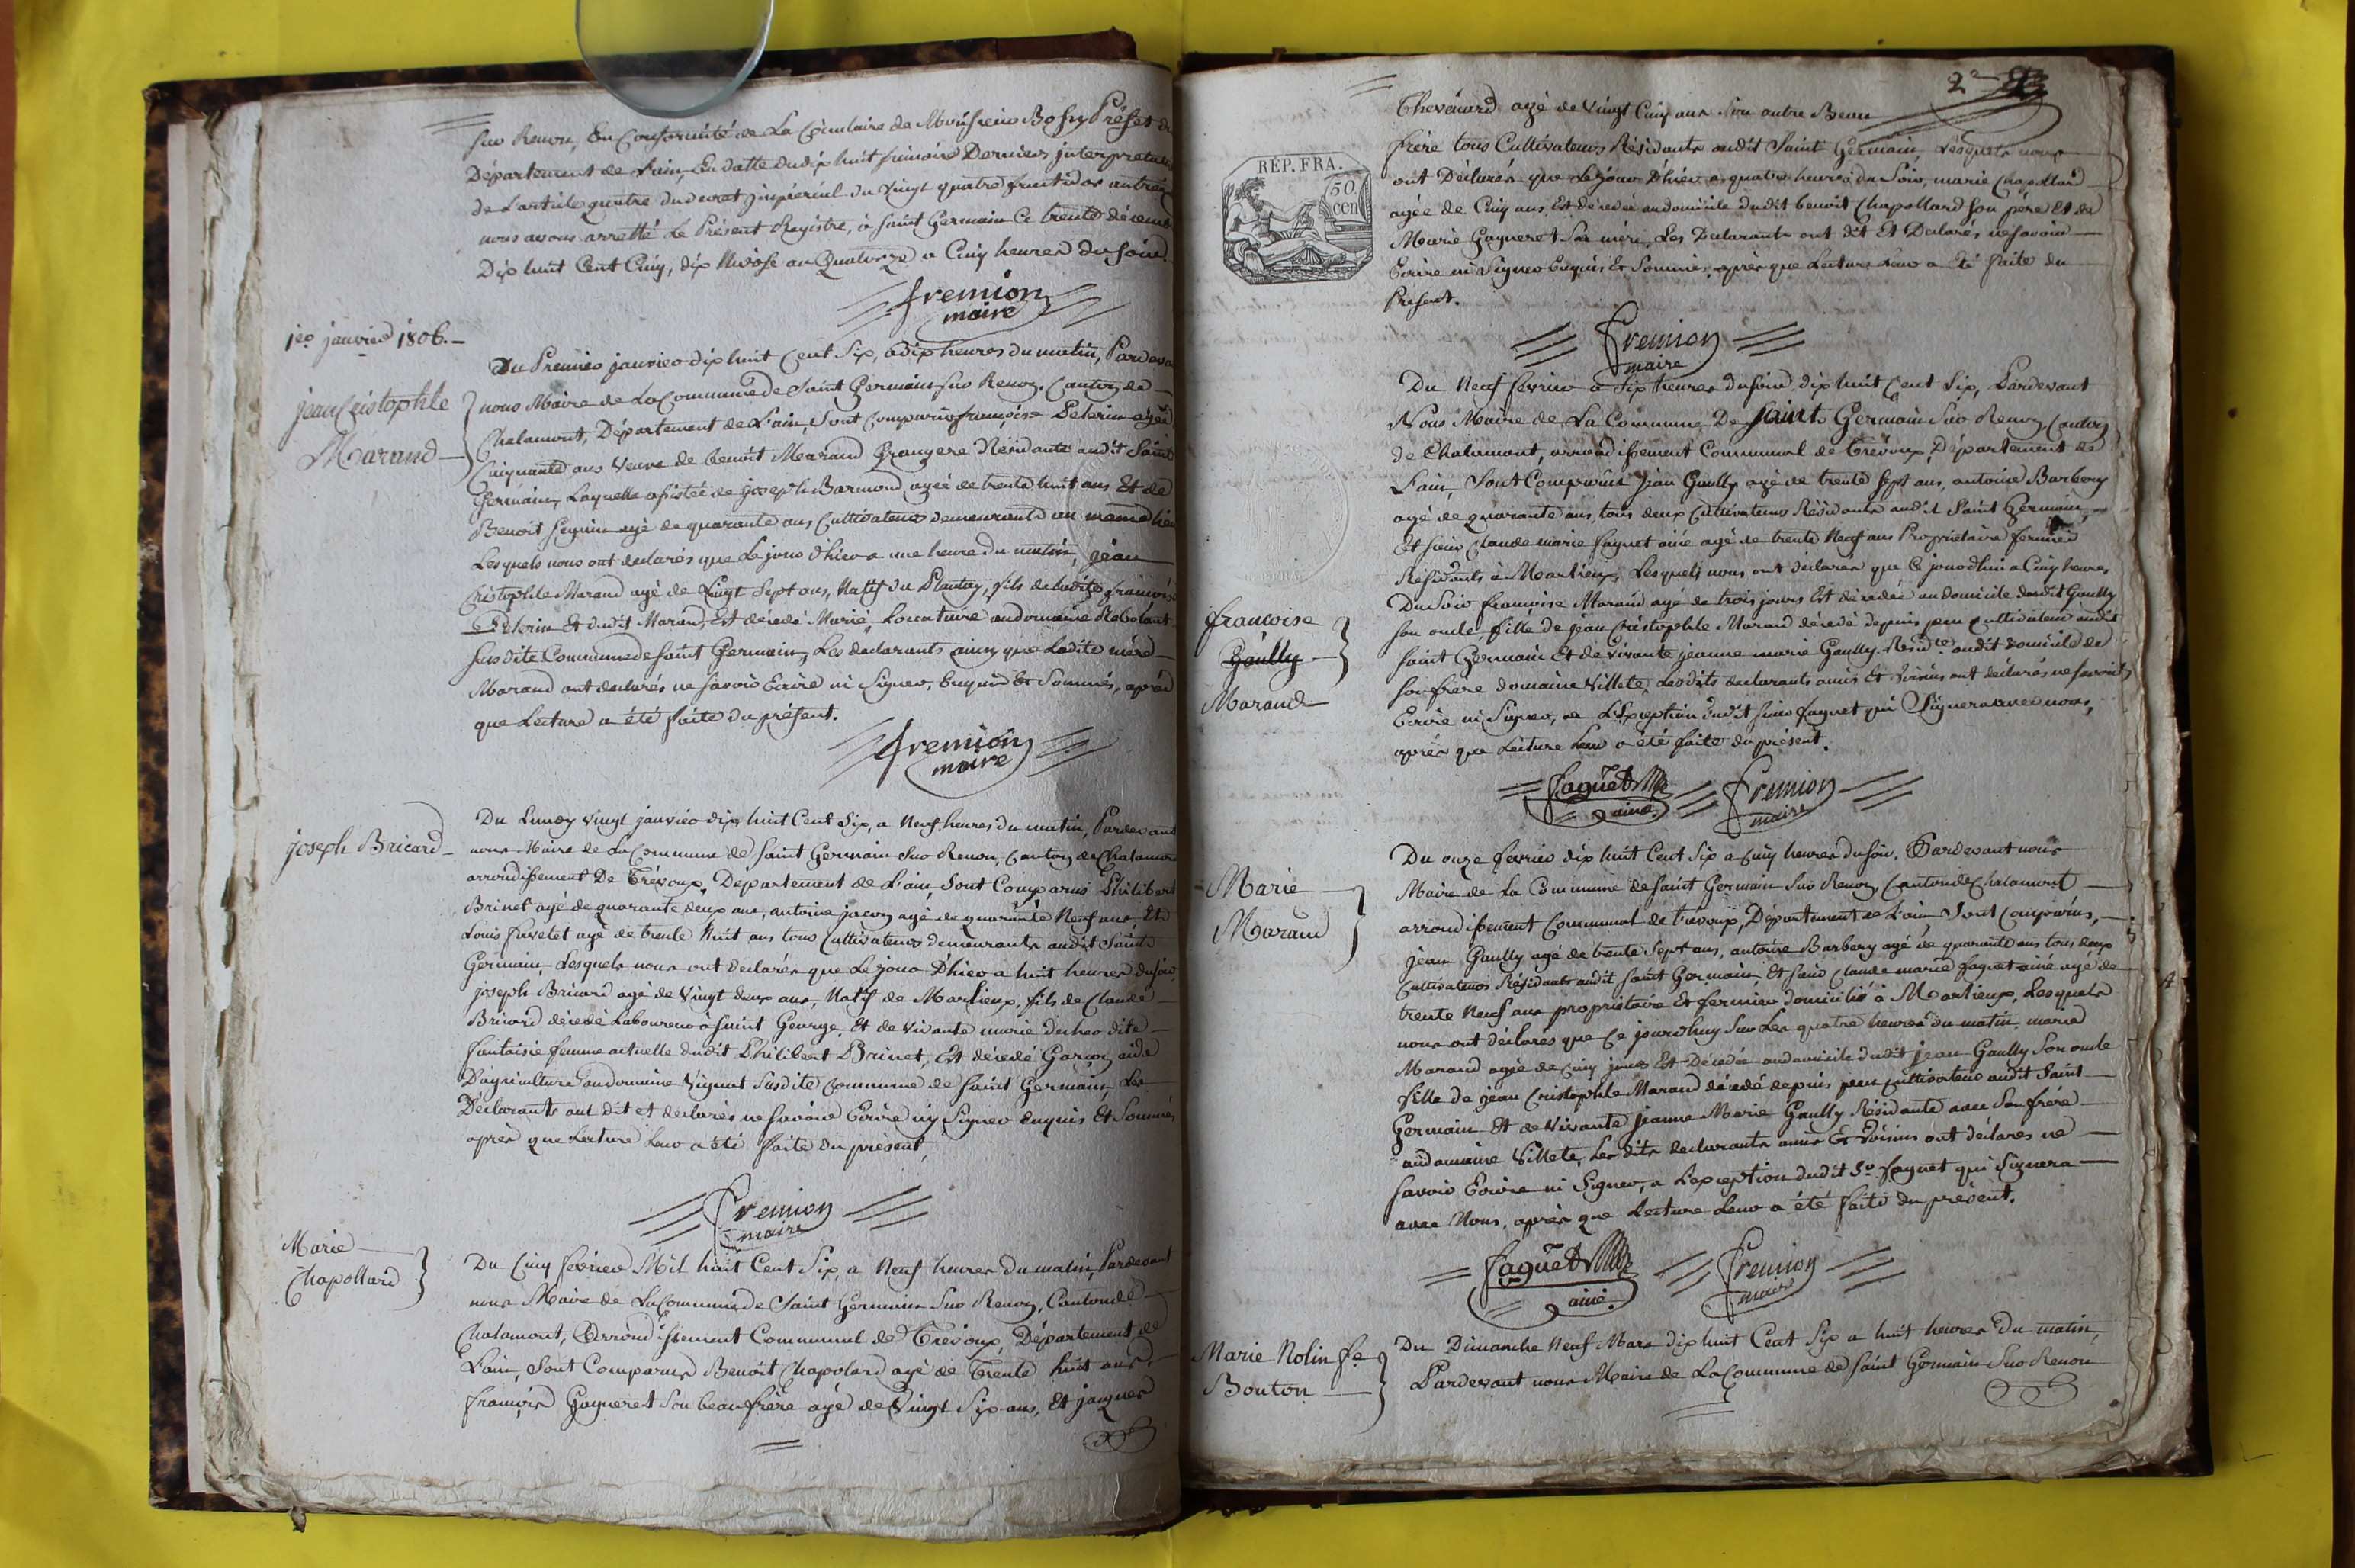 sur Renon, En Conformité de La Circulaire de Monsieur Bossy Préfet du
Département de L'ain, En datte du dix huit frimaire Dernier, interpretative
de L'article quatre du decret impérial du Vingt quatre fructidor an treize
nous avons arretté Le Présent Registre, à Saint Germain Ce trente décembre
Dix huit Cent Cinq, dix Nivose an Quatorze a Cinq heures du soir.
fremion
maire
1er janvier 1806.
jean Cristophle
Marand
Du Premier janvier dix huit Cent Six, a dix heures du matin, Pardevant
nous Maire de La Commune de Saint Germain sur Renon, Canton de
Chalamont, Département de L'ain, Sont Comparus françoise Pelerin agée
Cinquante ans Veuve de benoit Marand Grangere Résidante audit Saint
Germain, Laquelle assistée de joseph Barmond agé de trente huit ans Et de
Benoit Seguin agé de quarante ans Cultivateurs demeurants au meme lieu
Lesquels nous ont declarés que Le jour d'hier a une heure du matin, jean
Cristophle Marand agé de Vingt Sept ans, Natif du Plantay, fils de ladite françoise
Pelerin Et dudit Marand, Est décédé Marié, Locataire au domaine Rebolant
susdite Commune de saint Germain, Les declarants ainsy que Ladite mère
Marand ont declarés ne savoir Ecrire ni Signer, Enquis Et Sommés, après
que Lecture a été faite du présent.
fremion
maire
joseph Bricard
Du Lundy vingt janvier dix huit Cent Six, a Neuf heures du matin, Pardevant
nous Maire de La Commune de Saint Germain Sur Renon, Canton de Chalamont
arrondissement De Trévoux, Département de L'ain, Sont Comparus Philibert
Brinet agé de quarante deux ans, antoine jacon agé de quarante Neuf ans Et
Louis frivetet agé de trente Huit ans tous Cultivateurs demeurants audit Saint
Germain, Lesquels nous ont declarés que Le jour D'hier a huit heures du soir
joseph Bricard agé de Vingt deux ans, Natif de Marlieux, fils de Claude
Bricard décédé Laboureur à Saint George, Et de Vivante marie duchar dite
fantaisie femme actuelle dudit Philibert Brinet, Est décédé Garçon aide
D'agriculture au domaine Vignat Susdite Commune de Saint Germain, Les
Déclarants ont dit et declarés ne savoir Ecrire ny Signer Enquis Et Sommés
après que Lecture Leur a été faite du présent.
fremion
maire
Marie
Chapollard
Du Cinq fevrier Mil huit Cent Six, a Neuf heures du matin, Pardevant
nous Maire de La Commune de Saint Germain Sur Renon, Canton de
Chalamont, Arrondissement Communal de Trevoux, Département de
L'ain, Sont Comparus Benoit Chapolard agé de Trente huit ans,
françois Gagneret Son beau frère agé de Vingt Six ans, Et jaques
2e
Chevénard agé de Vingt Cinq ans Son autre Beau
RÉP. FRA.
50
cen
frère tous Cultivateurs Résidants audit Saint Germain, Lesquels nous
ont Déclarés que Le jour D'hier a quatre heures du Soir, marie Chapollard
agée de Cinq ans, Est décédée au domicile dudit benoit Chapollard Son père Et de
Marie Gagneret Sa mère, Les Declarants ont dit Et Declarés ne savoir
Ecrire ni Signer Enquis Et Sommés, après que Lecture Leur a été faite du
Présent.
fremion
maire
francoise
Gaully
Marand
Du Neuf fevrier a Six heures du soir, dix huit Cent Six, Pardevant
Nous Maire de La Commune De Saint Germain Sur Renon, Canton
de Chalamont, arrondissement Communal de Trévoux, Département de
L'ain, Sont Comparus Jean Gaully agé de trente Sept ans, antoine Barbery
agé de quarante ans, tous deux Cultivateurs Résidants audit Saint Germain,
Et sieur Claude marie faguet ainé agé de trente Neuf ans Propriétaire fermier
Résidants à Marlieux, Lesquels nous ont declarés que Ce jourd'hui a Cinq heures
Du Soir françoise Marand agé de trois jours Est décédée au domicile dudit Gaully
son oncle, fille de jean Cristophle Marand décédé depuis peu Cultivateur audit
Saint Germain Et de Vivante jeanne marie Gaully Résidte audit domicile de
Son frère domaine Villete, Lesdits declarants amis Et Voisins ont declarés ne savoir
Ecrire ni Signer, a L'Exception dudit sieur faguet qui Signera avec nous,
après que Lecture Leur a été faite du présent.
faguet
ainé
fremion
maire
Marie
Marand
Du onze fevrier dix huit Cent Six a Cinq heures du soir, Pardevant nous
Maire de La Commune de Saint Germain Sur Renon, Canton de Chalamont
arrondissement Communal de trévoux, Département de L'ain Sont Comparus,
jean Gaully agé de trente Sept ans, antoine Barbery agé de quarante ans tous deux
Cultivateurs Résidants audit Saint Germain, Et sieur Claude marie faguet ainé agé de
trente Neuf ans propriétaire Et fermier domicilié à Marlieux, Lesquels
nous ont déclarés que Ce jourd'huy Sur Les quatre heures du matin, marie
Marand agée de Cinq jours Est Décédée au domicile dudit jean Gaully Son oncle
fille de jean Cristophle Marand décédé depuis peu Cultivateur audit Saint
Germain Et de Vivante jeanne Marie Gaully Résidante avec Son frère
au domaine Villete, Les dits declarants amis Et Voisins ont déclarés ne
savoir Ecrire ni Signer, a L'exception dudit Sr faguet qui Signera
avec Nous, après que Lecture Leur a été faite du présent.
faguet
ainé
fremion
maire
Marie Nolin fe
Bouton
Du Dimanche Neuf Mars dix huit Cent Six a huit heures Du matin,
Pardevant nous Maire de La Commune de Saint Germain Sur Renon